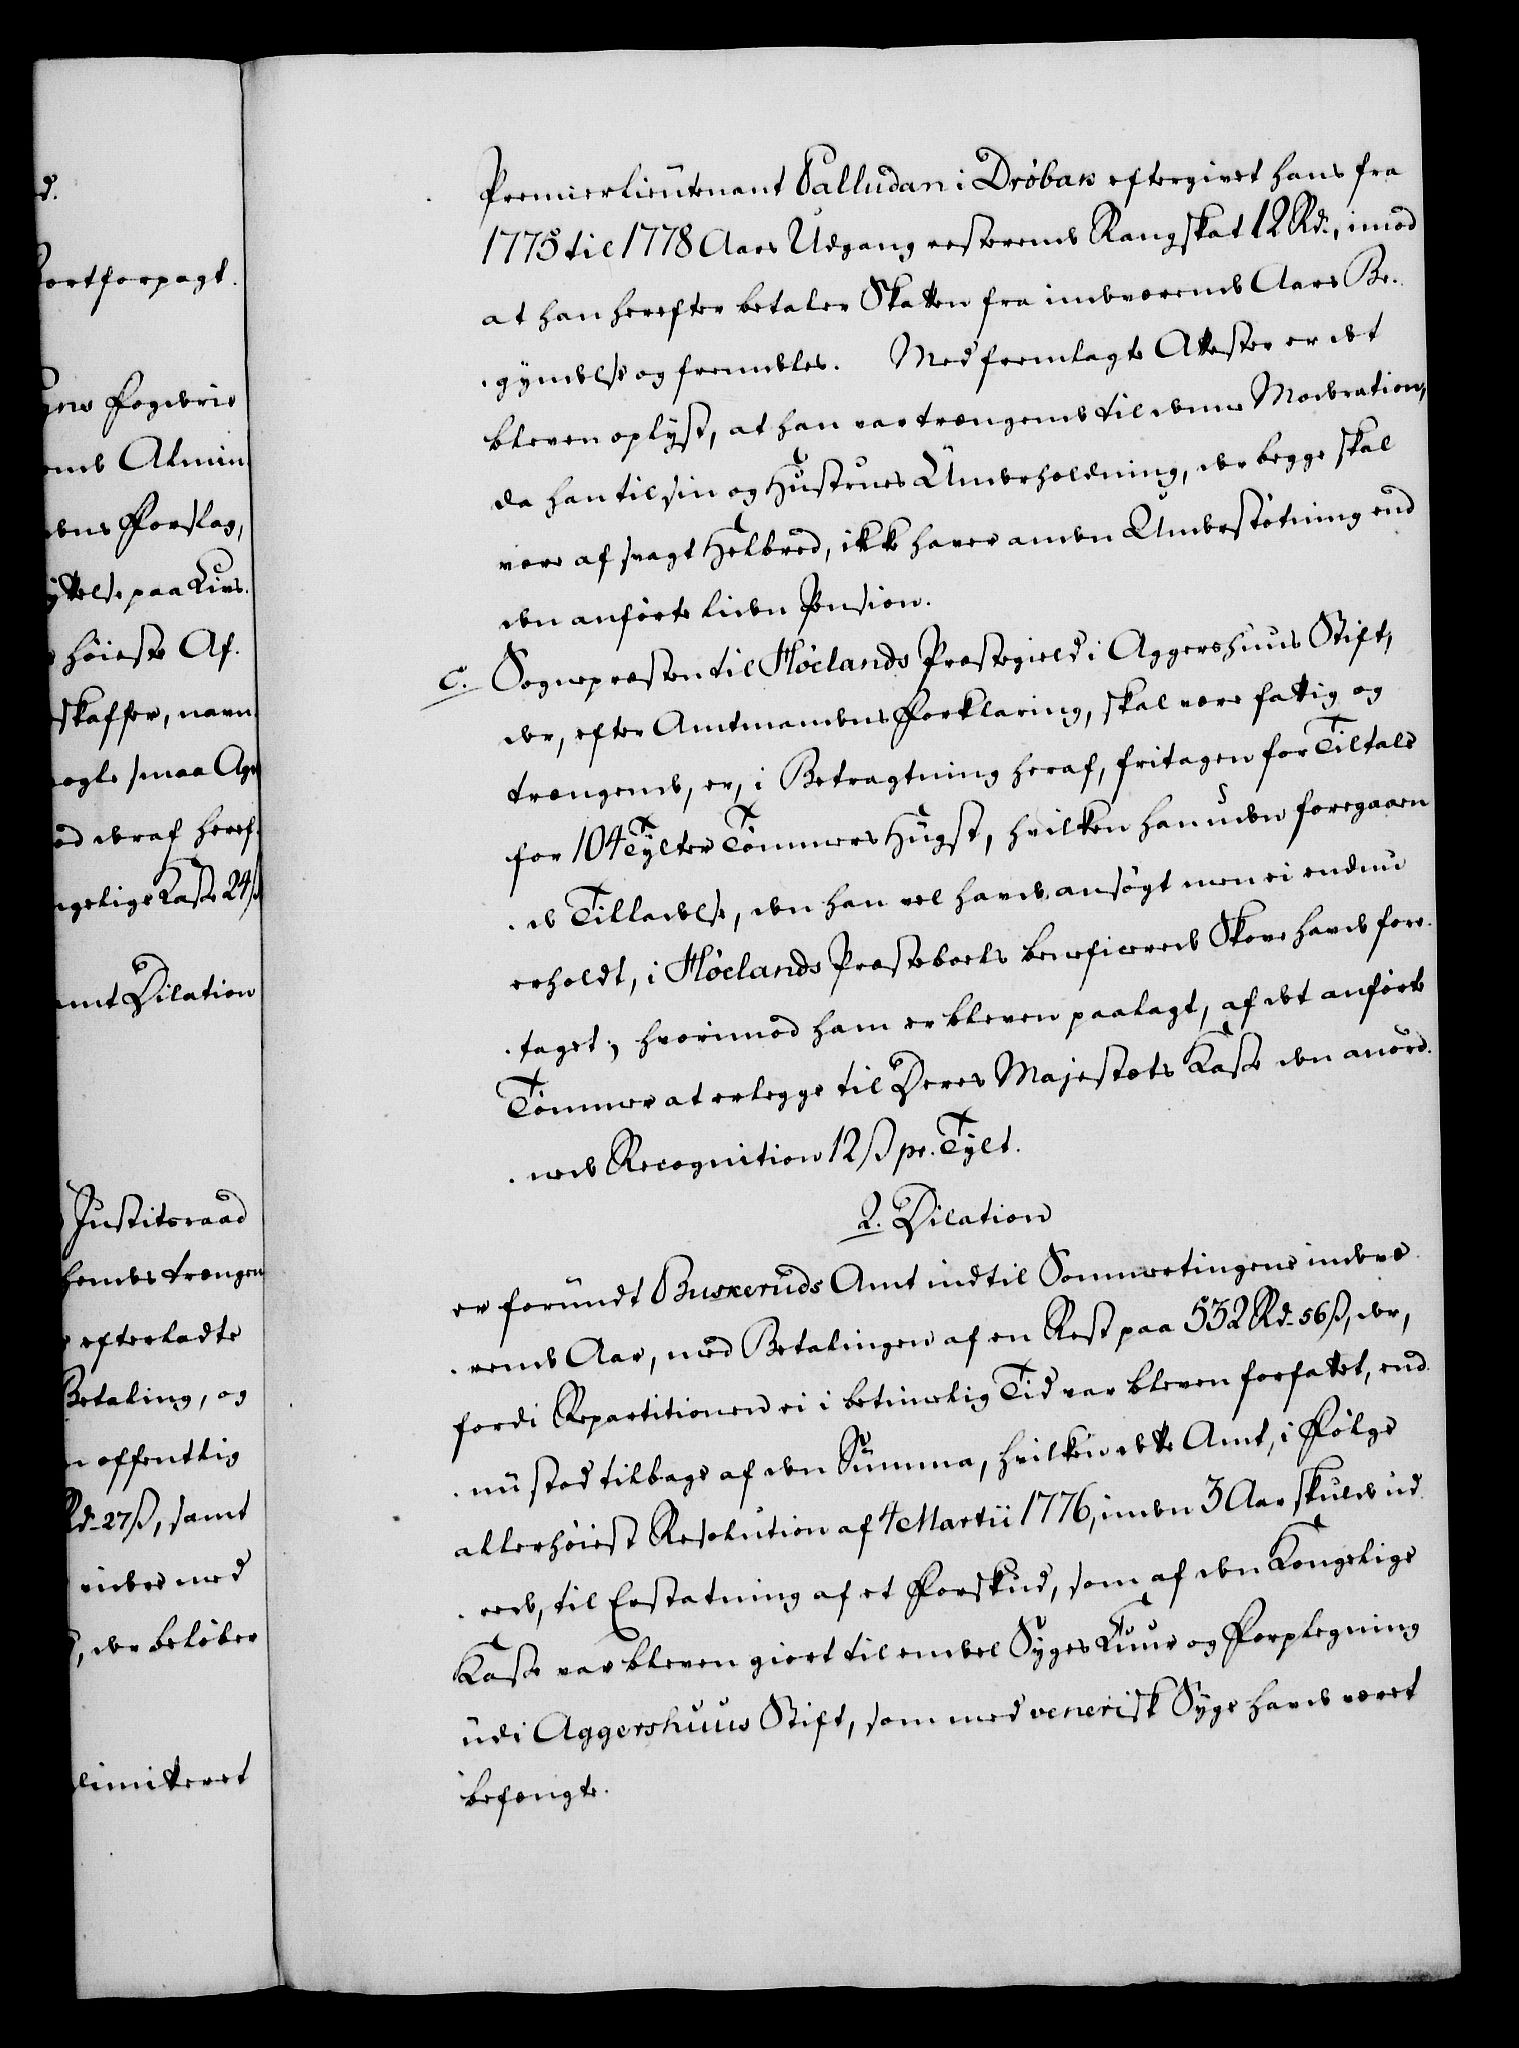 d.
ortforpagt.
Fogderie
Almin
Forslag,
paa Livs.
høieste Af.
skaffer, navn
ogle smaa Age
deraf heref.
ngelige Kasse 24 ß
amt Dilation
Justitsraad
trængen
efterladte
Betaling, og
offentlig
Rd. 27 ß, samt
med
, der beløber
limiteret
Premierlieutenant Palludan i Drøbak eftergivet hans fra
1775 til 1778 Aars Udgang resterende Rangskat 12 Rd., imod
at han herefter betaler Skatten fra indeværende Aars Be-
-gyndelse og fremdeles. Med fremlagte Attester er det
bleven oplyst, at han var trængende til denne Moderation,
da han til sin og Hustrues Underholdning, der begge skal
være af svagt Helbred, ikke haver anden Understøtning end
den anførte liden Pension.
c. Sognepræsten til Høelands Præstegield i Aggershuus Stift,
der, efter Amtmandens Forklaring, skal være fattig og
trængende, er, i Betragtning heraf, fritagen for Tiltale
for 104 Tylter Tømmers Hugst, hvilken han uden foregaaen
-de Tilladelse, den han vel havde ansøgt men ei endnu
erholdt, i Høelands Præsteboels beneficerede Skove havde fore-
-taget; hvorimod ham er bleven paalagt, af det anførte
Tømmer at erlegge til Deres Majestæts Kasse den anord-
-nede Recognition 12 ß pr. Tylt.
2. Dilation
er forundt Buskeruds Amt indtil Sommertingene indevæ
-rende Aar, med Betalingen af en Rest paa 532 Rd. 56 ß, der,
fordi Repartitionen ei i betimelig Tid var bleven forfattet, end-
-nu stod tilbage af den Summa, hvilken dette Amt, i Følge
allerhøiest Resolution af 4 Martii 1776, inden 3 Aar skulde ud
-rede, til Erstatning af et Forskud, som af den Kongelige
Kasse var bleven giort til endeel Syges Cuur og Forplegning
udi Aggershuus Stift, som med venerisk Syge havde været
befængte.